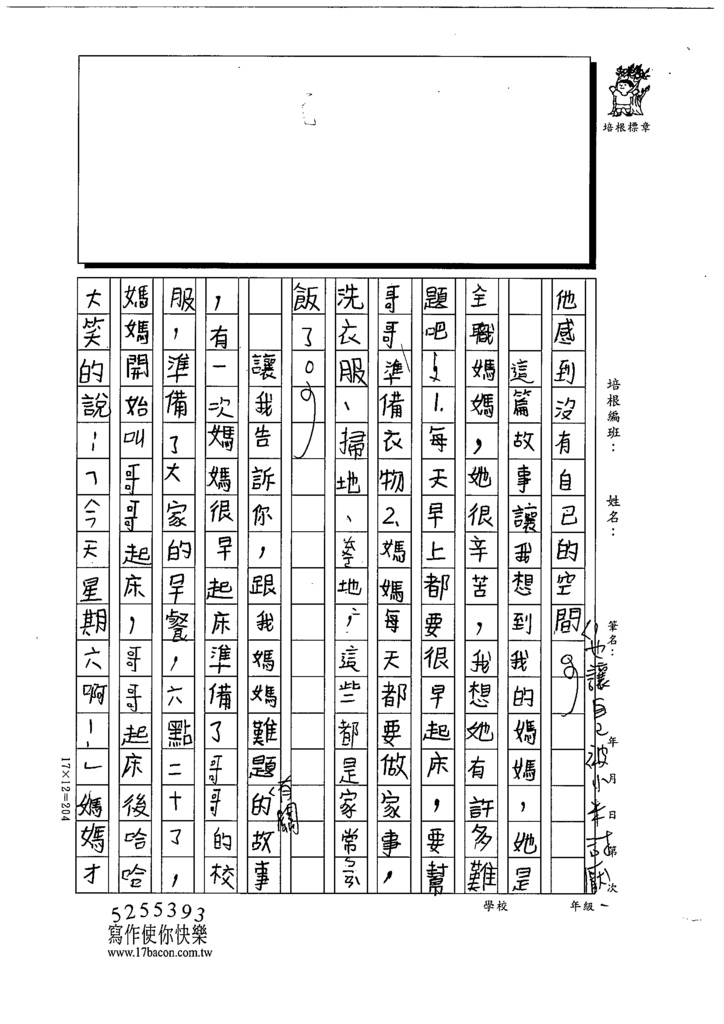 培根標章
培根編班： 姓名： 筆名： 年 月 日 第 次
學校 年級
他感到沒有自己的空間。
這篇故事讓我想到我的媽媽，她是
全職媽媽，她很辛苦，我想她有許多難
題吧！1.每天早上都要很早起床，要幫
哥哥準備衣物2.媽媽每天都要做家事，
洗衣服、掃地、地，這些都是家常
飯了。
讓我告訴你，跟我媽媽難題有關的故事
，有一次媽媽很早起床準備了哥哥的校
服，準備了大家的早餐，六點二十了，
媽媽開始叫哥哥起床，哥哥起床後哈哈
大笑的說！「今天星期六啊！」媽媽才
他讓自己被小孩
17×12=204
5255393
寫作使你快樂
www.17bacon.com.tw